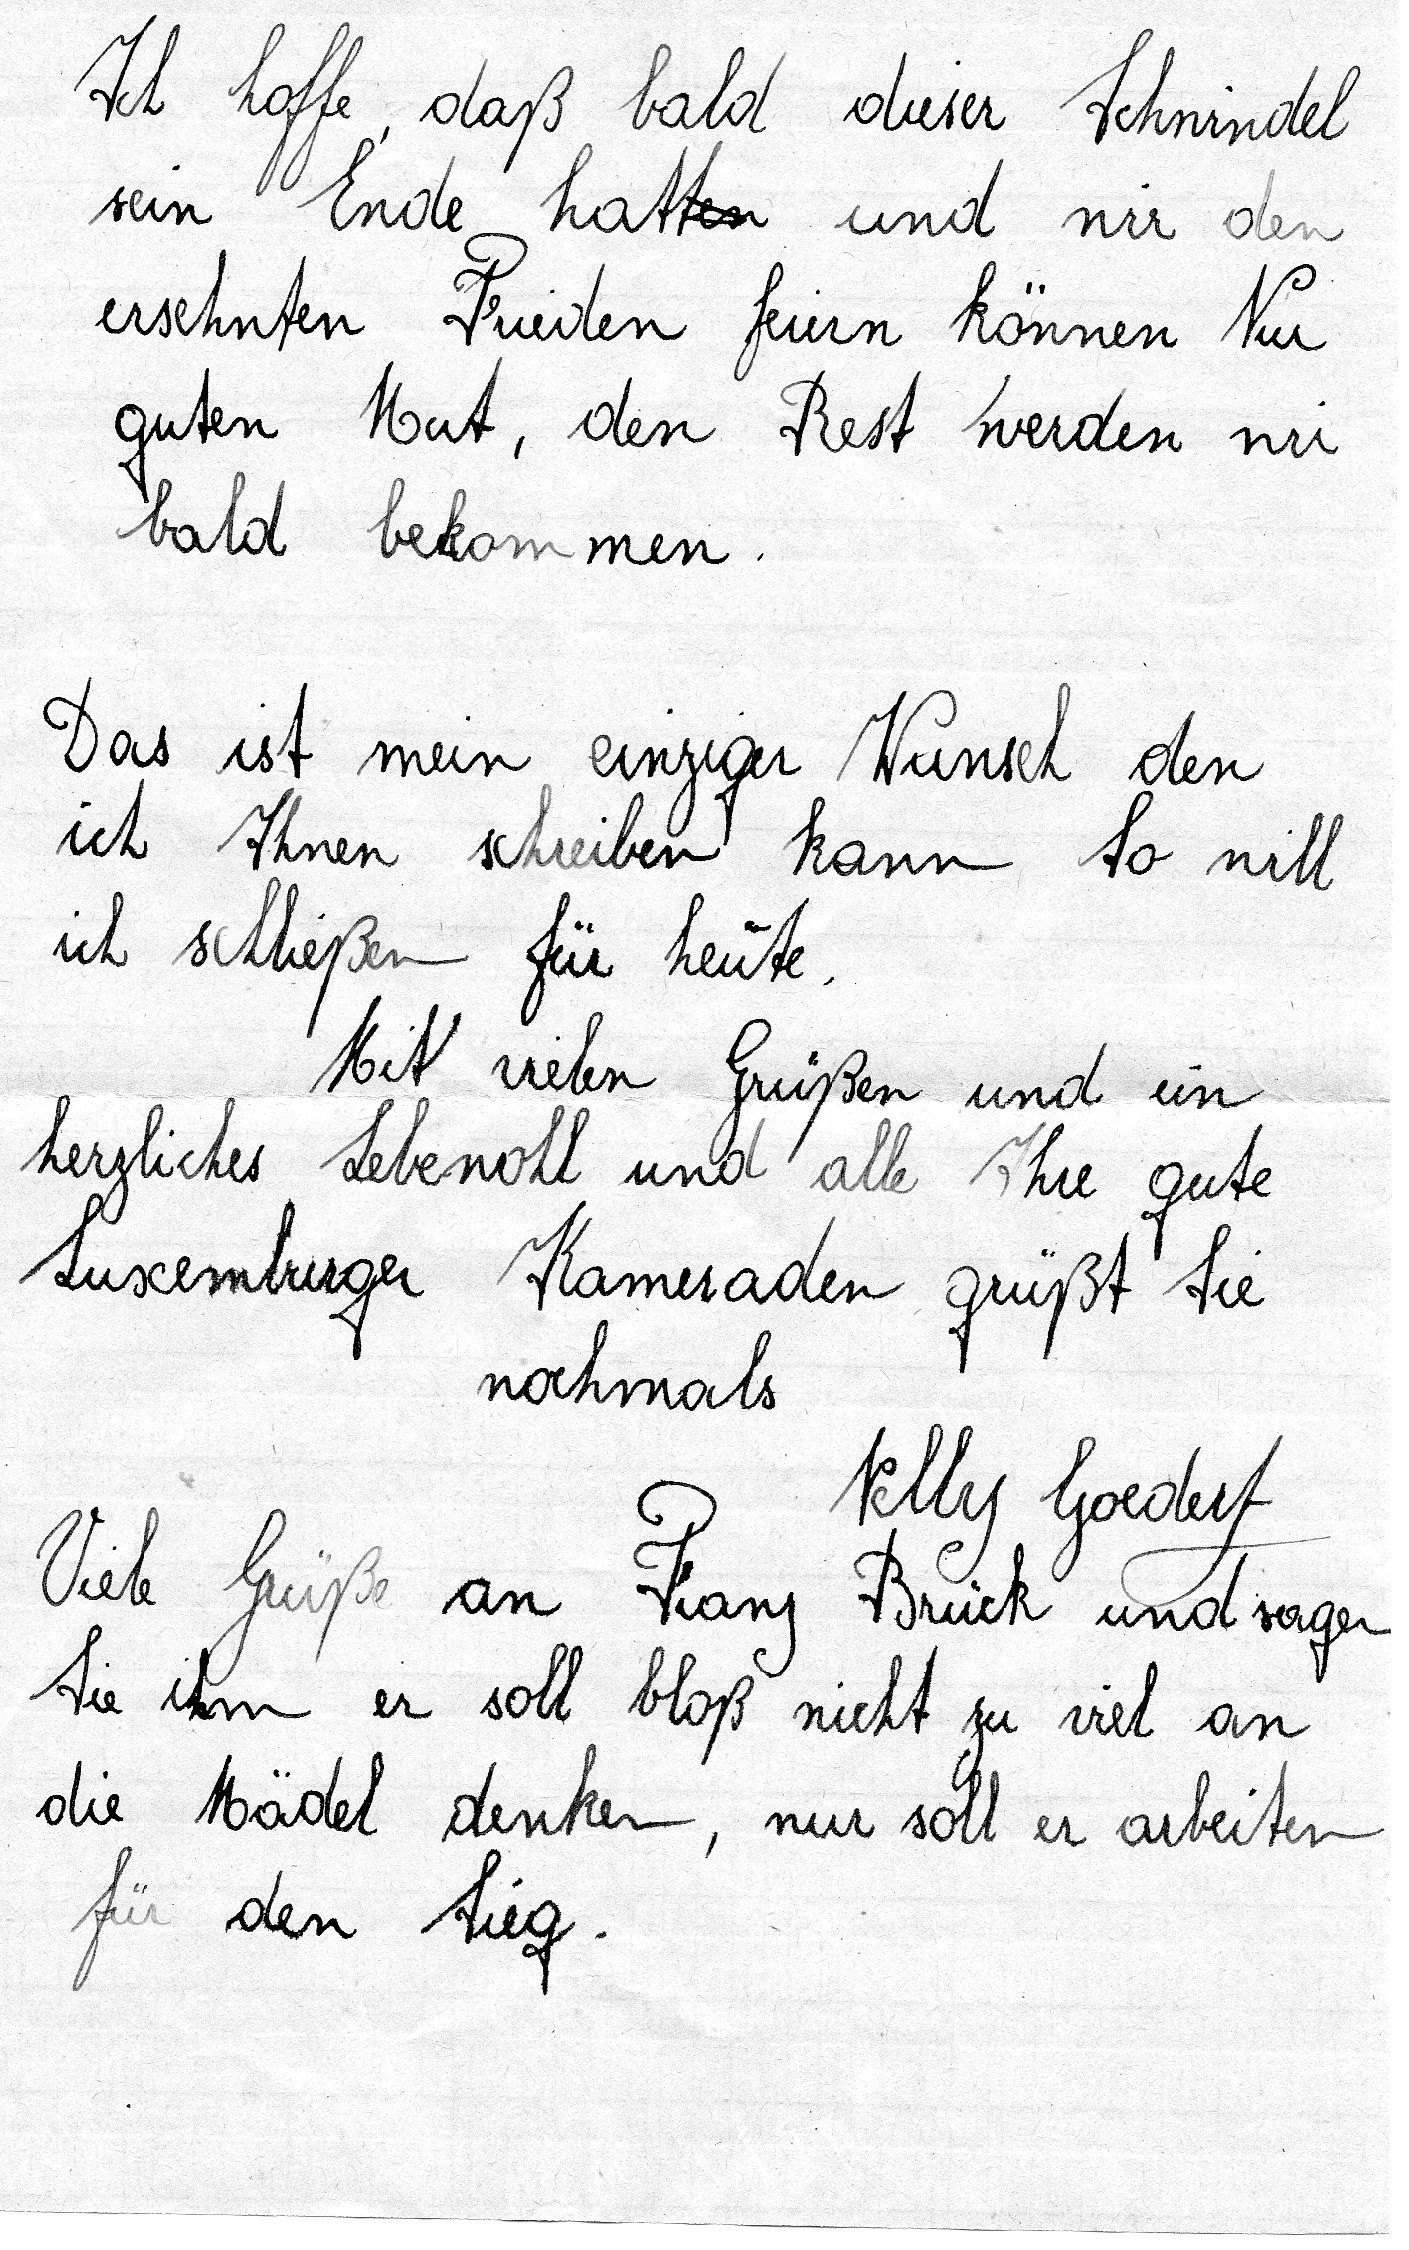 Ich hoffe, daß bald dieser Schwindel
sein Ende hat und wir den
ersehnten Frieden feiern können Nur
guten Mut, den Rest werden wir
bald bekommen.
Das ist mein einziger Wunsch den
ich Ihnen schreiben kann So will
ich schließen für heute.
Mit vielen Grüßen und ein
herzliches Lebewohl und alle Ihre gute
Luxemburger Kameraden grüßt Sie
nochmals
Nelly Goedert
Viele Grüße an Franz Brück und sagen
Sie ihm er soll bloß nicht zu viel an
die Mädel denken, nur soll er arbeiten
für den Sieg.